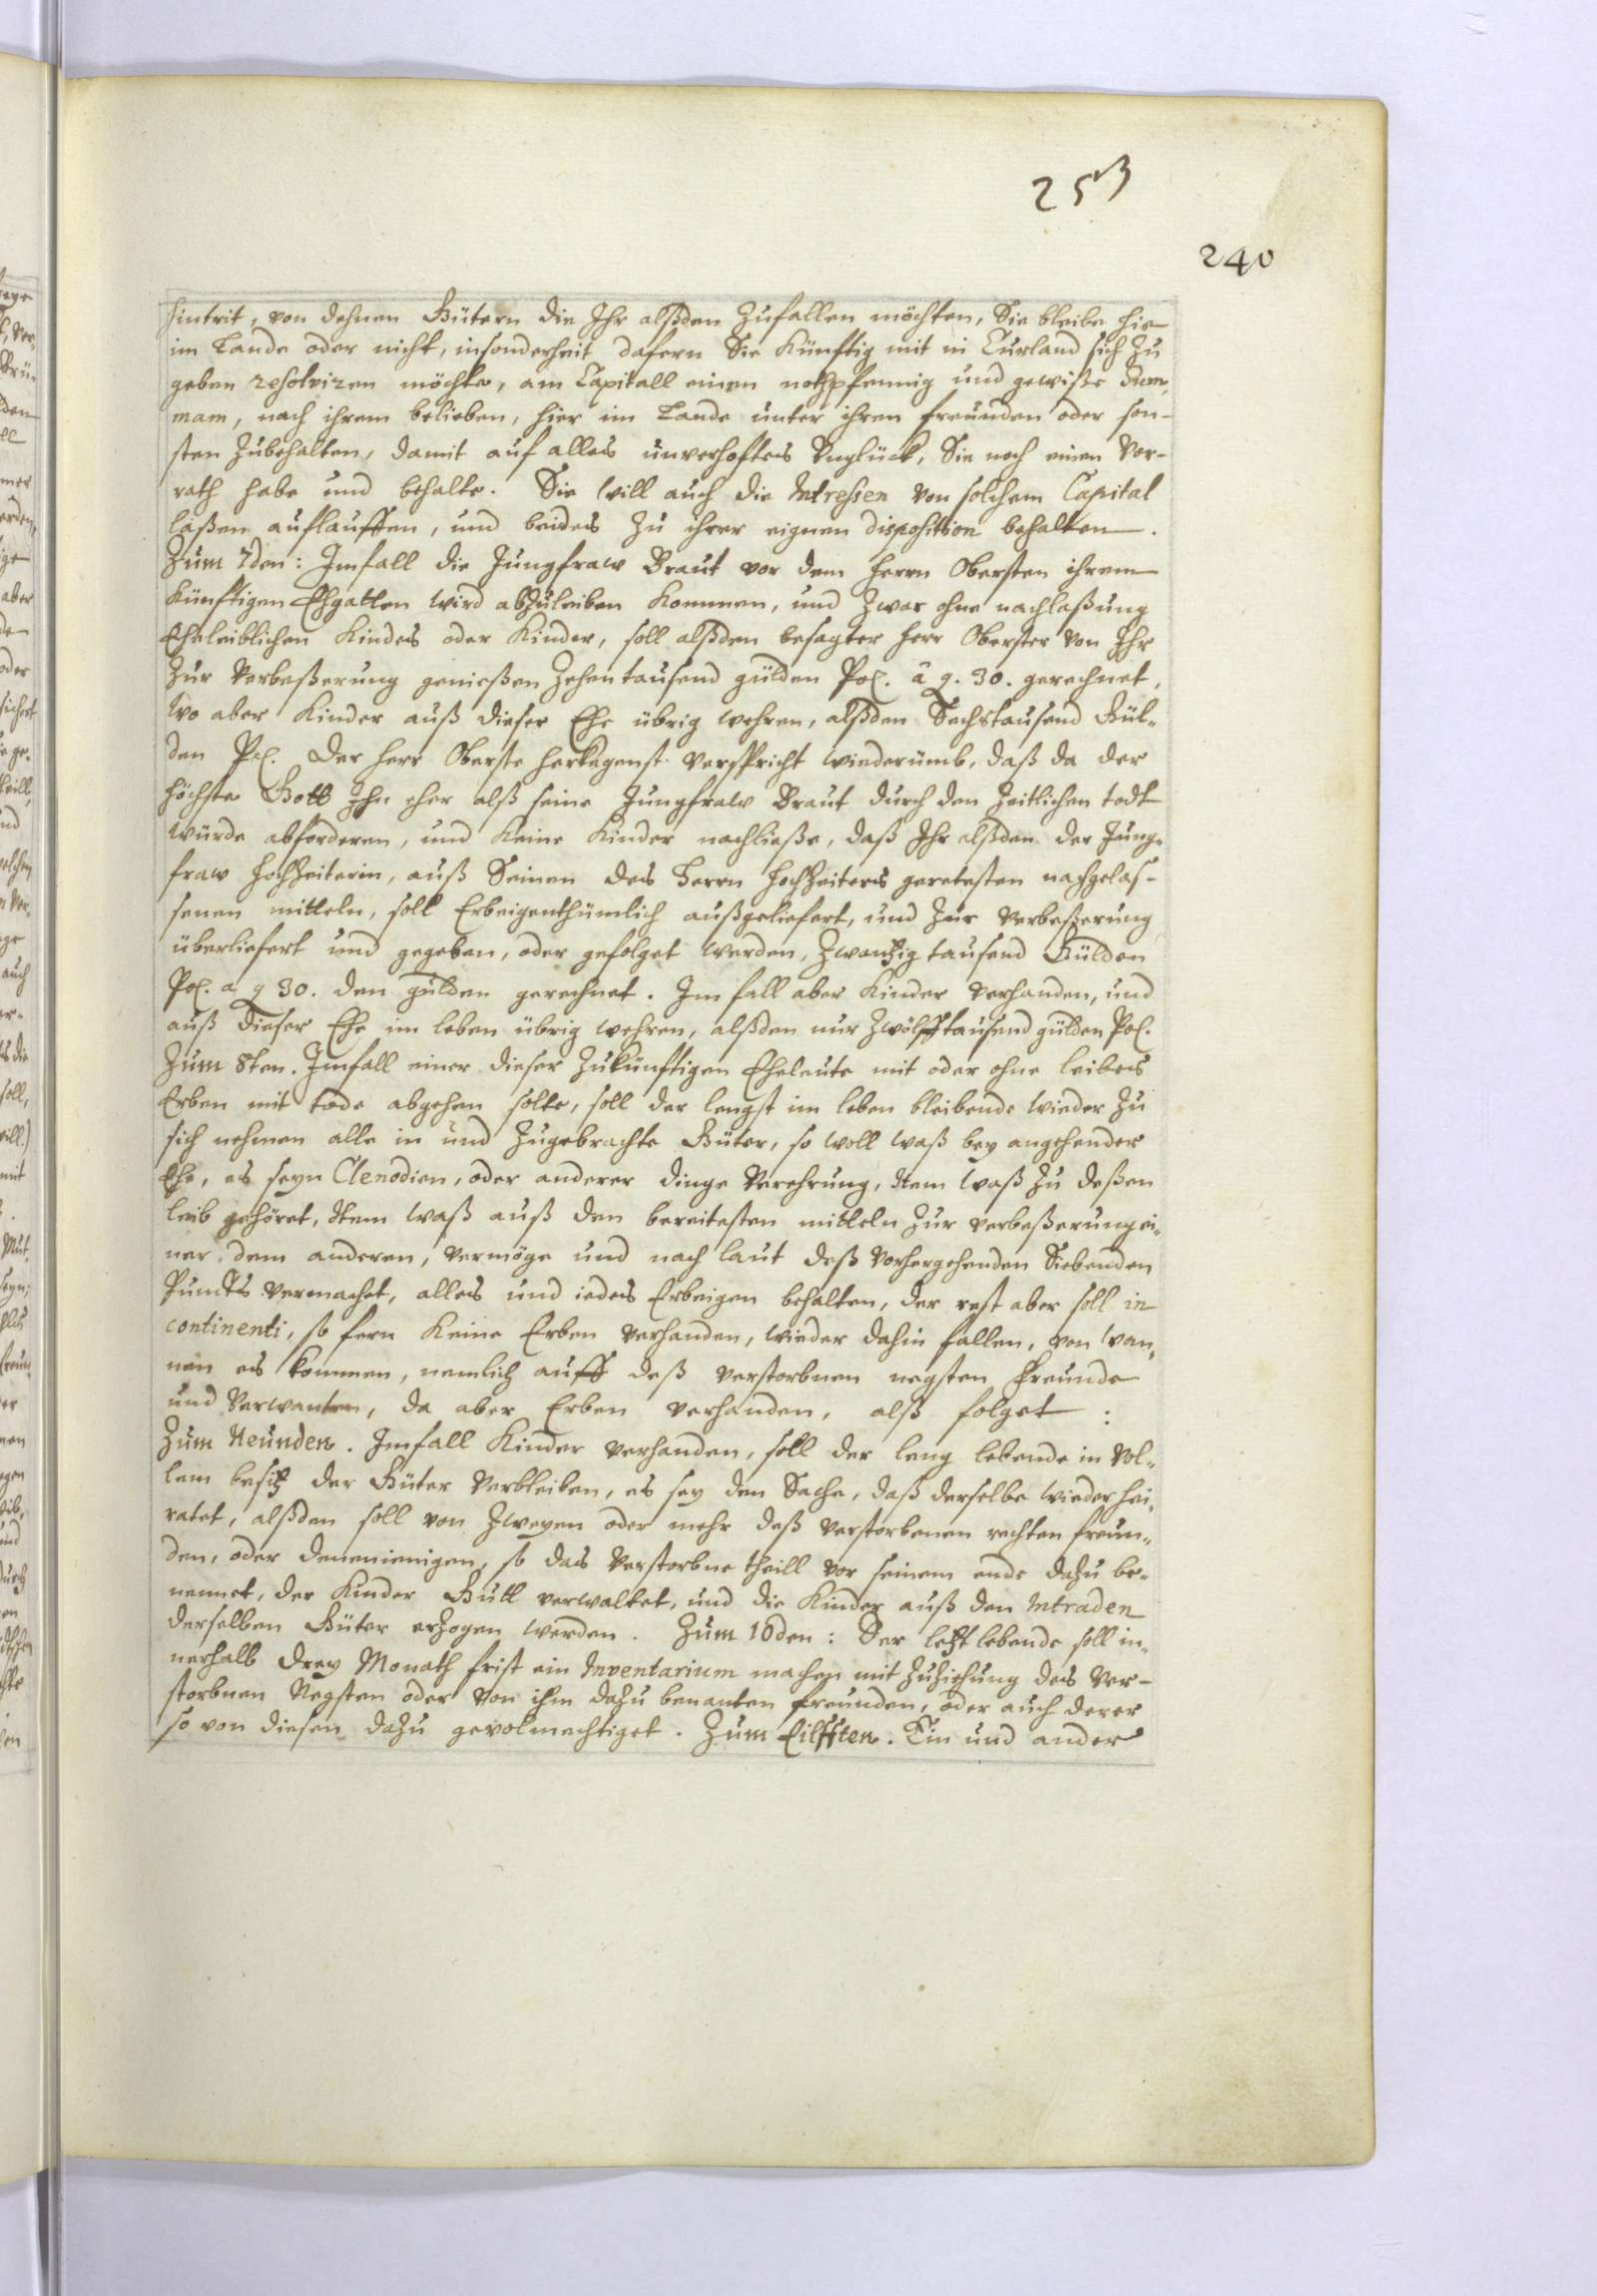 253
240
hintrit, von dehnen Gütern die Ihr alßden Zufallen möchten, Sie bleibe hie
im Lande oder nicht, insonderheit dafern Sie Künftig mit in Curland sich Zu
geben resolviren möchte, am Capitall einen nothpfennig und gewiße Sum,
mam, nach ihrem belieben, hier im Lande unter ihren freunden oder son-
sten Zubehalten, damit auf alles unverhoftes Unglück, Sie noch einen Vor-
rath habe und behalte. Sie will auch die Intressen von solchem Capital
laßen auflauffen, und beides Zu ihrer eignen disposition behalten.
Zum 7den: Imfall die Jungfraw Braut vor dem Herrn Obersten ihrem
Künftigen Ehgatten wird abzuleiben Kommen, und Zwar ohne nachlaßung
Eheleiblichen Kindes oder Kinder, soll alßden besagter Herr Oberster von Ihr
Zur Verbeßerung genießen Zehentausend gülden Pol. â g. 30. gerechnet,
wo aber Kinder auß dieser Ehe übrig wehren, alßden Sechstausend Gül-
den Pol. Der Herr Oberste herkegenst verspricht wiederümb, daß da der
höchste Gott Ihn eher alß seine Jungfraw Braut durch den Zeitlichen todt
würde abforderen, und Keine Kinder nachließe, daß Ihr alßden der Jung-
fraw Hochzeiterin, auß Seinen des Herrn Hochzeiters geretesten nachgelas-
senen mitteln, soll Erbeigenthümlich außgeliefert, und Zur Verbeßerung
überliefert und gegeben, oder gefolget werden, Zwantzig tausend Gülden
Pol. a g 30. den gülden gerechnet. Im fall aber Kinder verhanden, und
auß dieser Ehe im leben übrig wehren, alßden nur Zwölfftausend gülden Pol.
Zum 8ten. Imfall einer dieser Zukünftigen Eheleute mit oder ohne leibes
Erben mit tode abgehen solte, soll der lengst im leben bleibende wieder Zu
sich nehmen alle in und Zugebrachte Güter, so woll waß bey angehender
Ehe, es seyn Clenodien, oder anderer dinge Verehrung, Item waß Zu deßen
leib gehöret, Item waß auß den bereitesten mitteln Zur verbeßerung ei-
ner dem anderen, vermöge und nach laut deß Vorhergehenden Siebenden
Puncts vermachet, alles und iedes Erbeigen behalten, der rest aber soll in
continenti, so fern Keine Erben verhanden, wieder dahin fallen, von wan,
nen es kommen, nemlich auff deß verstorbnen negsten Freunde
und Verwanten, da aber Erben verhanden, alß folget :
Zum Neunden. Imfall Kinder verhanden, soll der leng lebende in Vol-
lem besitz der Güter Verbleiben, es sey den Sache, daß derselbe wieder hei-
ratet, alßden soll von Zweyen oder mehr deß Verstorbenen rechten freun-
den, oder denenienigen, so das Verstorbne theill vor seinem ende dazu be-
nennet, der Kinder Gutt verwaltet, und die Kinder auß den Intraden
derselben Güter erzogen werden. Zum 10den: Der letzt lebende soll in-
nerhalb drey Monath frist ein Inventarium machen mit Zuziehung des Ver-
storbnen Negsten oder von ihm dazu benanten freunden, oder auch derer
so von diesen dazu gevolmechtiget. Zum Eilfften. Ein und ander